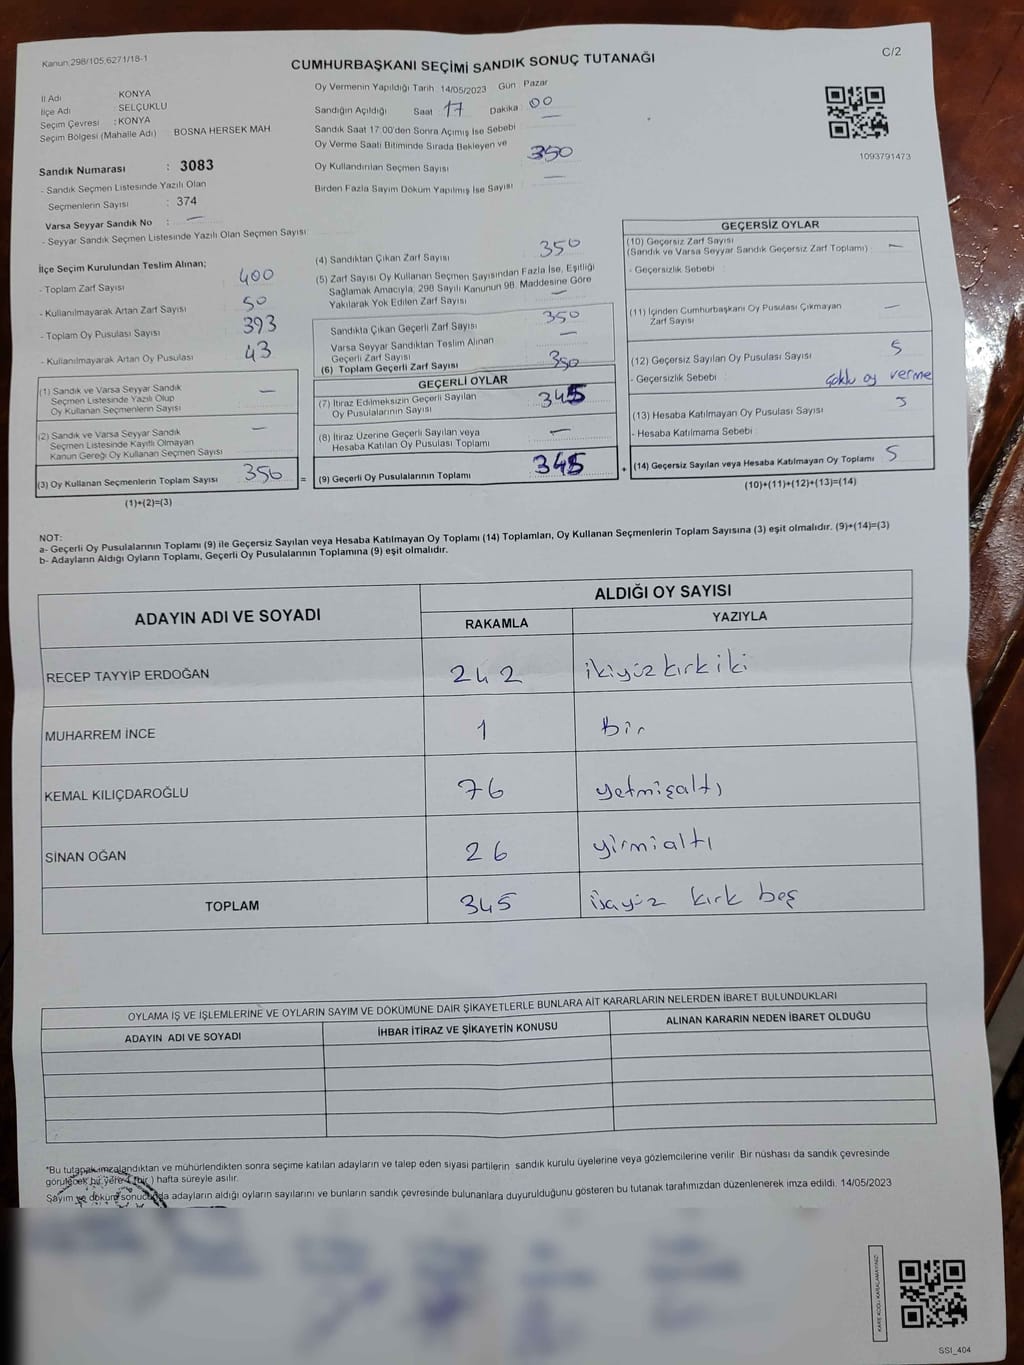 Kanun:298/105,6271/18-1
C/2
CUMHURBAŞKANI SEÇİMİ SANDIK SONUÇ TUTANAĞI
İl Adı : KONYA
İlçe Adı : SELÇUKLU
Seçim Çevresi : KONYA
Seçim Bölgesi (Mahalle Adı) BOSNA HERSEK MAH
Sandık Numarası : 3083
- Sandık Seçmen Listesinde Yazılı Olan
Seçmenlerin Sayısı : 374
Varsa Seyyar Sandık No : —
- Seyyar Sandık Seçmen Listesinde Yazılı Olan Seçmen Sayısı
Oy Vermenin Yapıldığı Tarih 14/05/2023 Gün Pazar
Sandığın Açıldığı Saat 17 Dakika 00
Sandık Saat 17.00'den Sonra Açımış İse Sebebi —
Oy Verme Saati Bitiminde Sırada Bekleyen ve
Oy Kullandırılan Seçmen Sayısı 350
Birden Fazla Sayım Döküm Yapılmış İse Sayısı —
1093791473
İlçe Seçim Kurulundan Teslim Alınan;
- Toplam Zarf Sayısı 400
- Kullanılmayarak Artan Zarf Sayısı 50
- Toplam Oy Pusulası Sayısı 393
- Kullanılmayarak Artan Oy Pusulası 43
(1) Sandık ve Varsa Seyyar Sandık
Seçmen Listesinde Yazılı Olup
Oy Kullanan Seçmenlerin Sayısı —
(2) Sandık ve Varsa Seyyar Sandık
Seçmen Listesinde Kayıtlı Olmayan
Kanun Gereği Oy Kullanan Seçmen Sayısı —
(3) Oy Kullanan Seçmenlerin Toplam Sayısı 350 =
(1)+(2)=(3)
(4) Sandıktan Çıkan Zarf Sayısı 350
(5) Zarf Sayısı Oy Kullanan Seçmen Sayısından Fazla İse, Eşitliği
Sağlamak Amacıyla, 298 Sayılı Kanunun 98. Maddesine Göre
Yakılarak Yok Edilen Zarf Sayısı —
Sandıkta Çıkan Geçerli Zarf Sayısı 350
Varsa Seyyar Sandıktan Teslim Alınan
Geçerli Zarf Sayısı —
(6) Toplam Geçerli Zarf Sayısı 350
GEÇERLİ OYLAR
(7) İtiraz Edilmeksizin Geçerli Sayılan
Oy Pusulalarının Sayısı 345
(8) İtiraz Üzerine Geçerli Sayılan veya
Hesaba Katılan Oy Pusulası Toplamı —
(9) Geçerli Oy Pusulalarının Toplamı 345 +
GEÇERSİZ OYLAR
(10) Geçersiz Zarf Sayısı
(Sandık ve Varsa Seyyar Sandık Geçersiz Zarf Toplamı) —
- Geçersizlik Sebebi :
(11) İçinden Cumhurbaşkanı Oy Pusulası Çıkmayan
Zarf Sayısı —
(12) Geçersiz Sayılan Oy Pusulası Sayısı 5
- Geçersizlik Sebebi : çoklu oy verme
(13) Hesaba Katılmayan Oy Pusulası Sayısı
- Hesaba Katılmama Sebebi :
(14) Geçersiz Sayılan veya Hesaba Katılmayan Oy Toplamı 5
(10)+(11)+(12)+(13)=(14)
NOT:
a- Geçerli Oy Pusulalarının Toplamı (9) ile Geçersiz Sayılan veya Hesaba Katılmayan Oy Toplamı (14) Toplamları, Oy Kullanan Seçmenlerin Toplam Sayısına (3) eşit olmalıdır. (9)+(14)=(3)
b- Adayların Aldığı Oyların Toplamı, Geçerli Oy Pusulalarının Toplamına (9) eşit olmalıdır.
ADAYIN ADI VE SOYADI
ALDIĞI OY SAYISI
RAKAMLA YAZIYLA
RECEP TAYYİP ERDOĞAN 242 ikiyüz kırk iki
MUHARREM İNCE 1 bir
KEMAL KILIÇDAROĞLU 76 yetmişaltı
SİNAN OĞAN 26 yirmialtı
TOPLAM 345 üçyüz kırk beş
OYLAMA İŞ VE İŞLEMLERİNE VE OYLARIN SAYIM VE DÖKÜMÜNE DAİR ŞİKAYETLERLE BUNLARA AİT KARARLARIN NELERDEN İBARET BULUNDUKLARI
ADAYIN ADI VE SOYADI İHBAR İTİRAZ VE ŞİKAYETİN KONUSU ALINAN KARARIN NEDEN İBARET OLDUĞU
*Bu tutanak imzalandıktan ve mühürlendikten sonra seçime katılan adayların ve talep eden siyasi partilerin sandık kurulu üyelerine veya gözlemcilerine verilir. Bir nüshası da sandık çevresinde
görülecek bir yere 1 (bir) hafta süreyle asılır.
Sayım ve döküm sonucunda adayların aldığı oyların sayılarını ve bunların sandık çevresinde bulunanlara duyurulduğunu gösteren bu tutanak tarafımızdan düzenlenerek imza edildi. 14/05/2023
KARE KODU KARALAMAYINIZ!
SSI_404